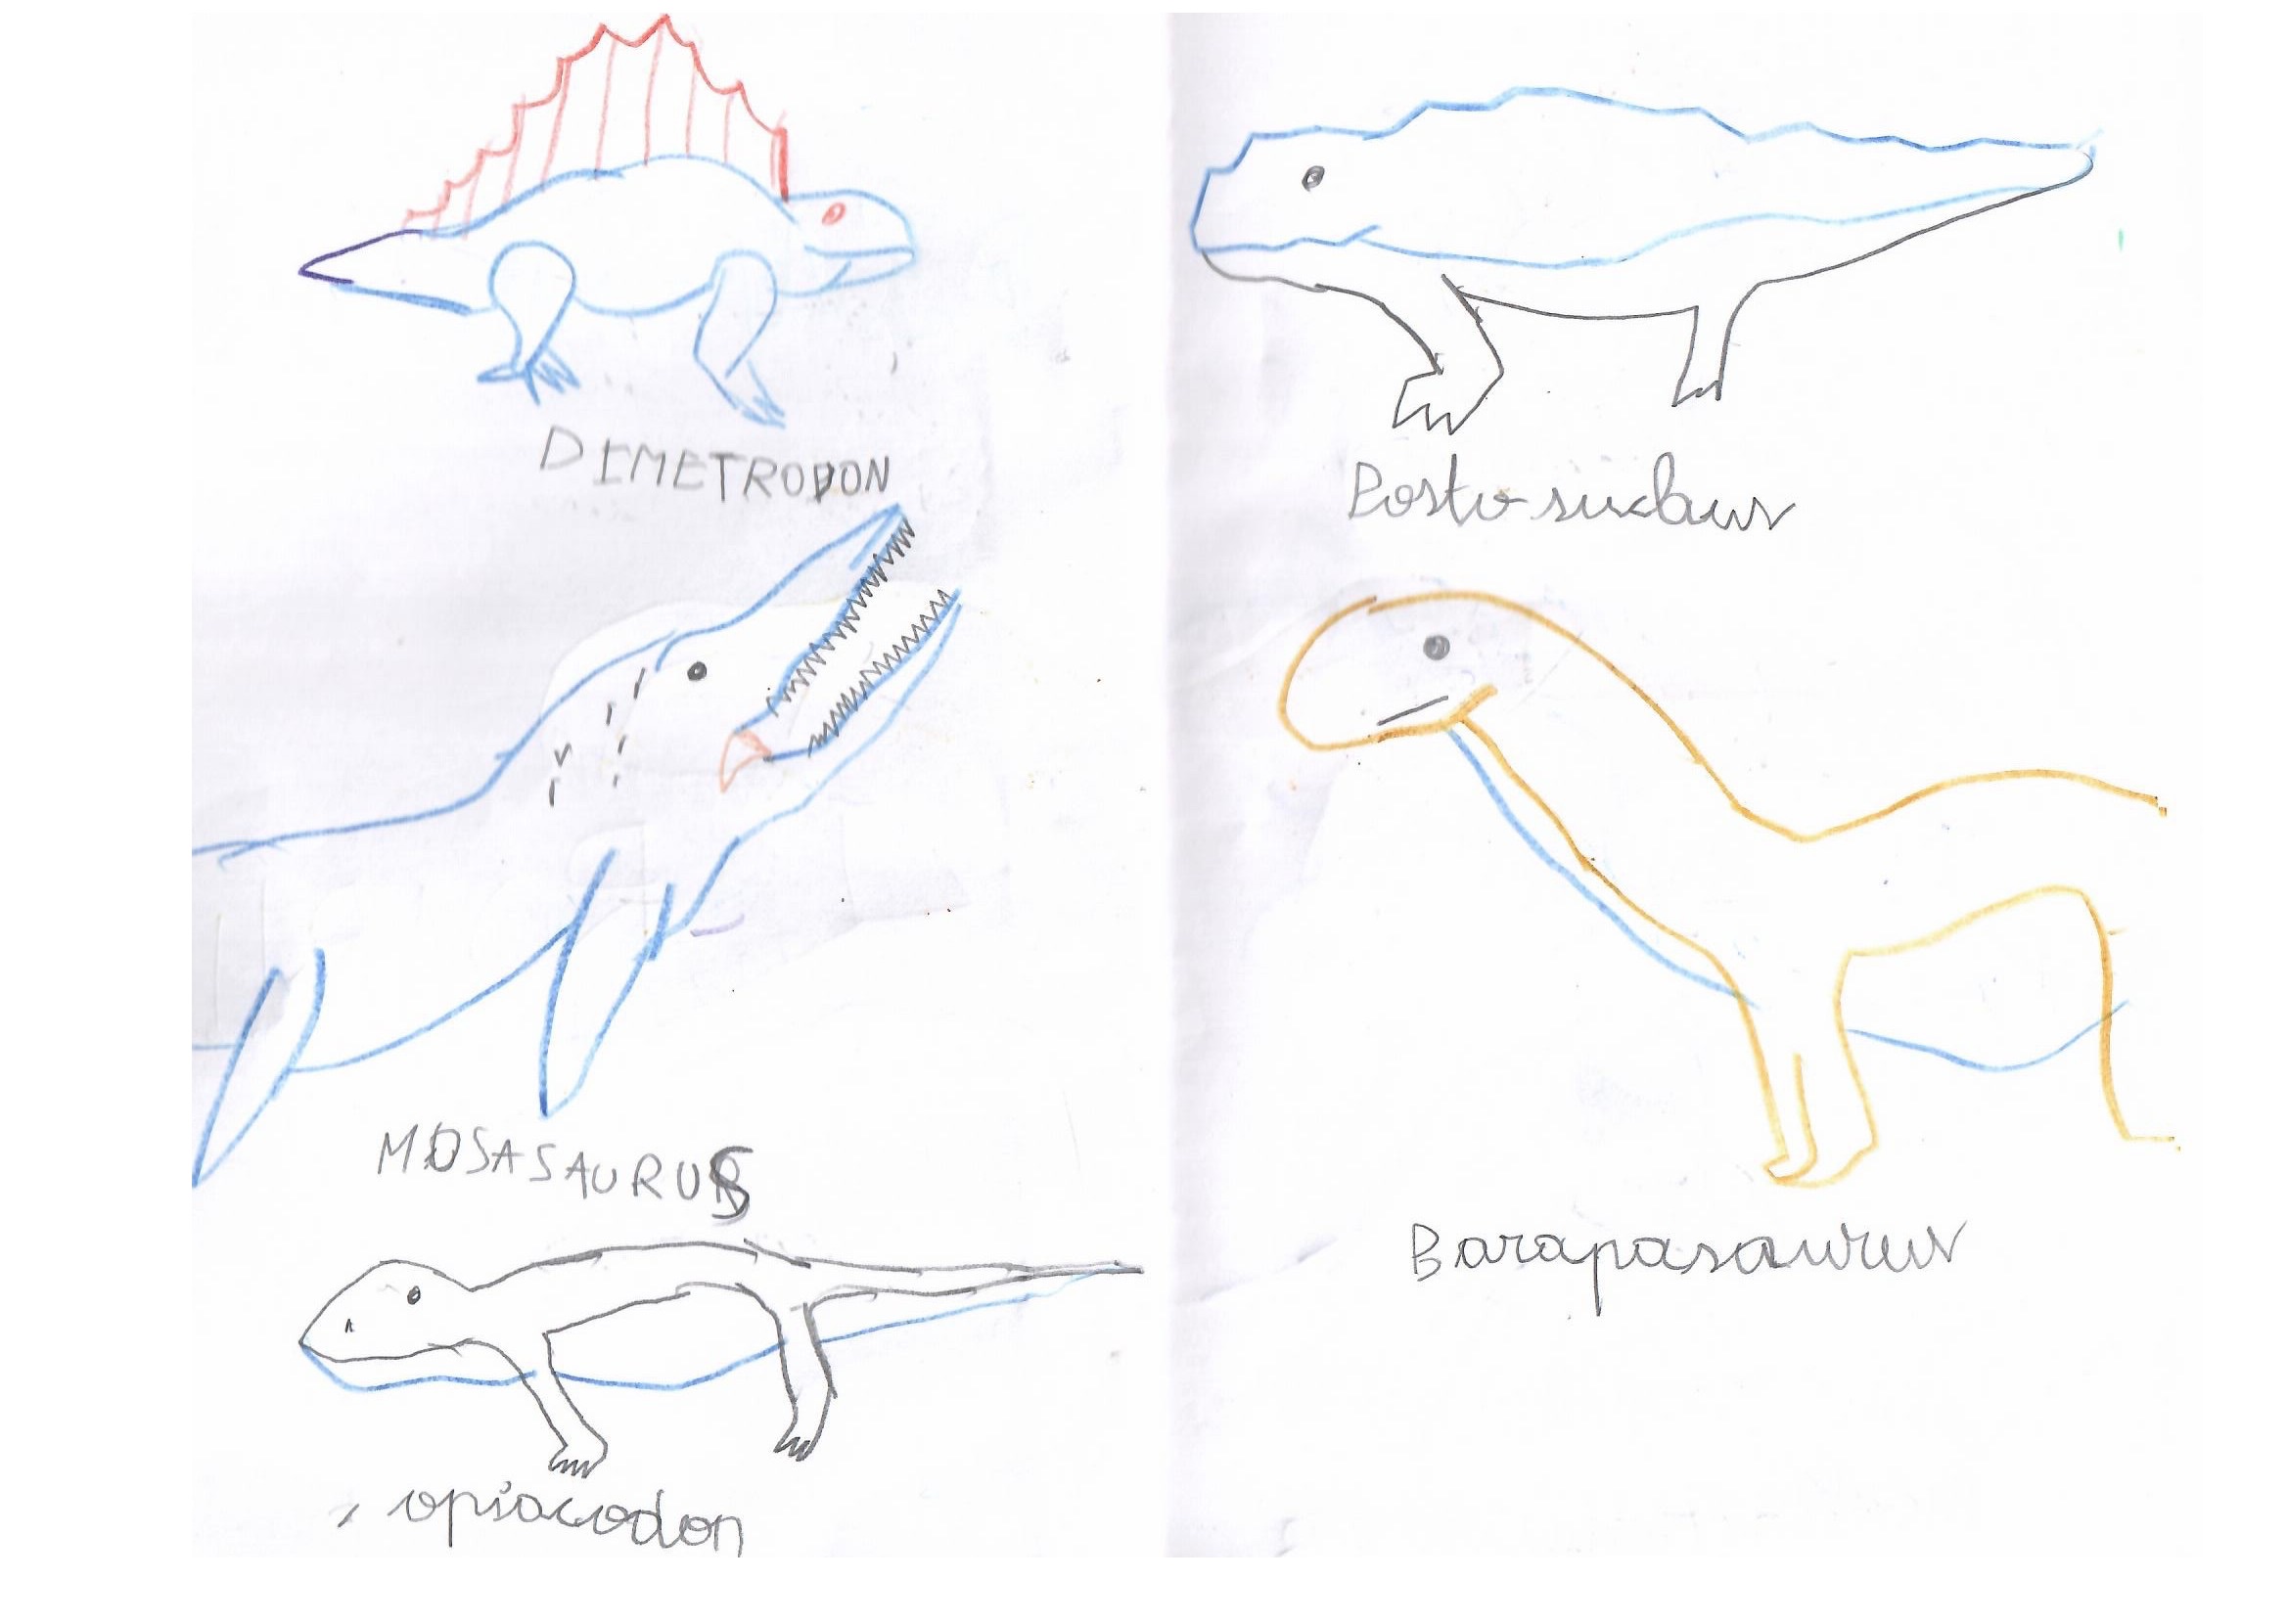 DIMETRODON
MOSASAURUS
opiacodon
Postosuchus
Barapasaurus